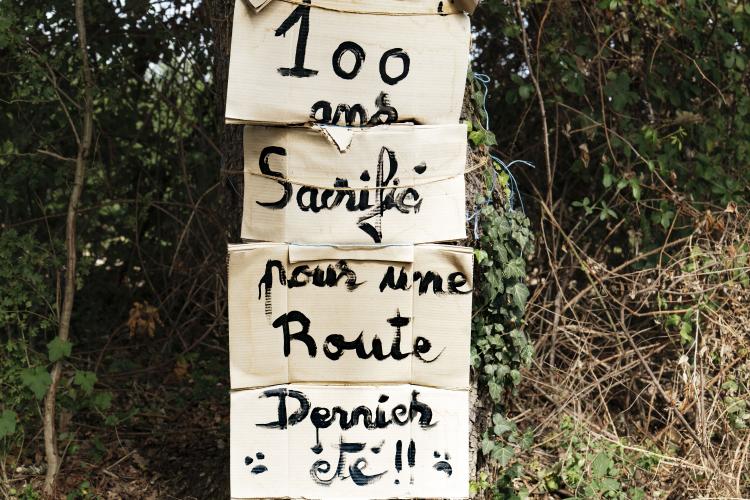 100
ans
Sacrifié
pour une
Route
Dernier
été !!